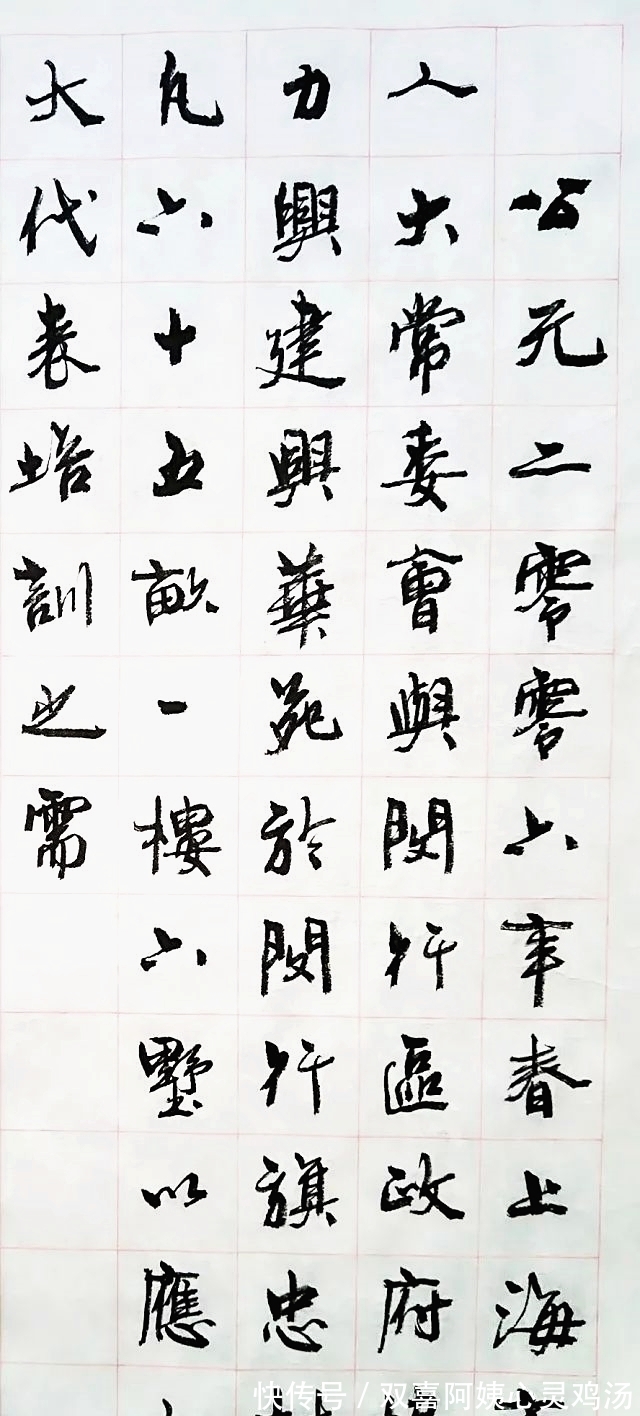 公元二零零六年春上海
人大常委會與閔行區政府
力興建興華苑於閔行旗忠
凡六十五畝一樓六墅以應
大代表培訓之需
快传号/双喜阿姨心灵鸡汤